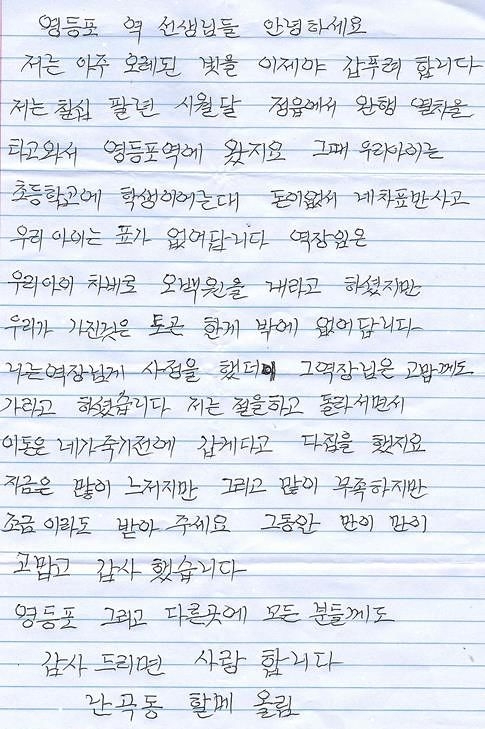 영등포 역 선생님들 안녕하세요
저는 아주 오레된 빗을 이제야 갑푸려 합니다
저는 칠십 팔년 시월달 정읍에서 완행 열차을
타고와서 영등포역에 왔지요 그때 우리아이는
초등학고에 학생이어는대 돈이없서 네차표만사고
우리 아이는 표가 없어답니다 역장임은
우리아이 차비로 오백원을 내라고 하셨지만
우리가 가진것은 토큰 한게 밖에 없어답니다
나는역장님게 사정을 했더니 그역장님은 고맙께도
가라고 하셨습니다 저는 절을하고 돌라서면서
이돈은 네가죽기전에 갑게다고 다짐을 했지요
지금은 많이 느저지만 그리고 많이 부족하지만
조금 이라도 받아 주세요 그동안 만이 만이
고맙고 감사 했습니다
영등포 그리고 다른곳에 모든 분들께도
감사 드리면 사랑 합니다
난곡동 할메 올림